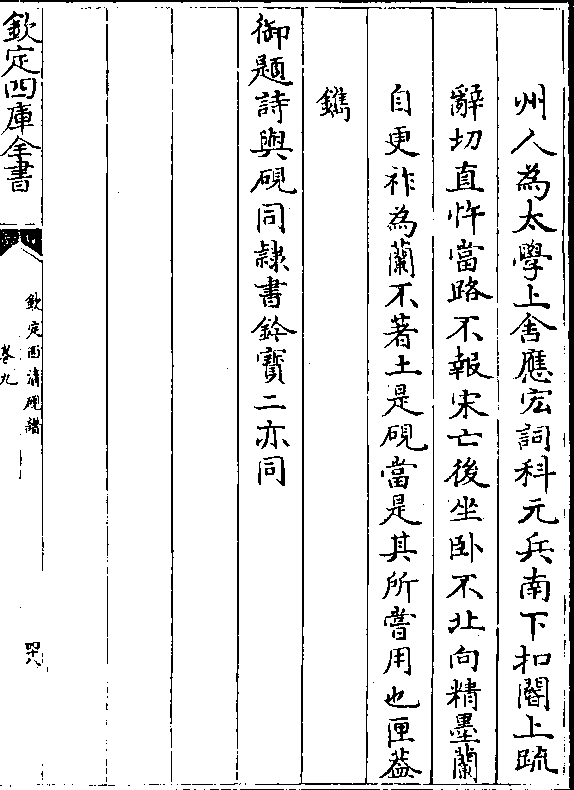 州人為太學上舍應宏詞科元兵南下扣閽上疏
辭切直忤當路不報宋亡後坐卧不北向精墨蘭
自更祚為蘭不著土是硯當是其所嘗用也匣葢
鐫
御題詩與硯同隸書鈐寳二亦同
欽定四庫全書
欽定西清硯譜
卷九
四八